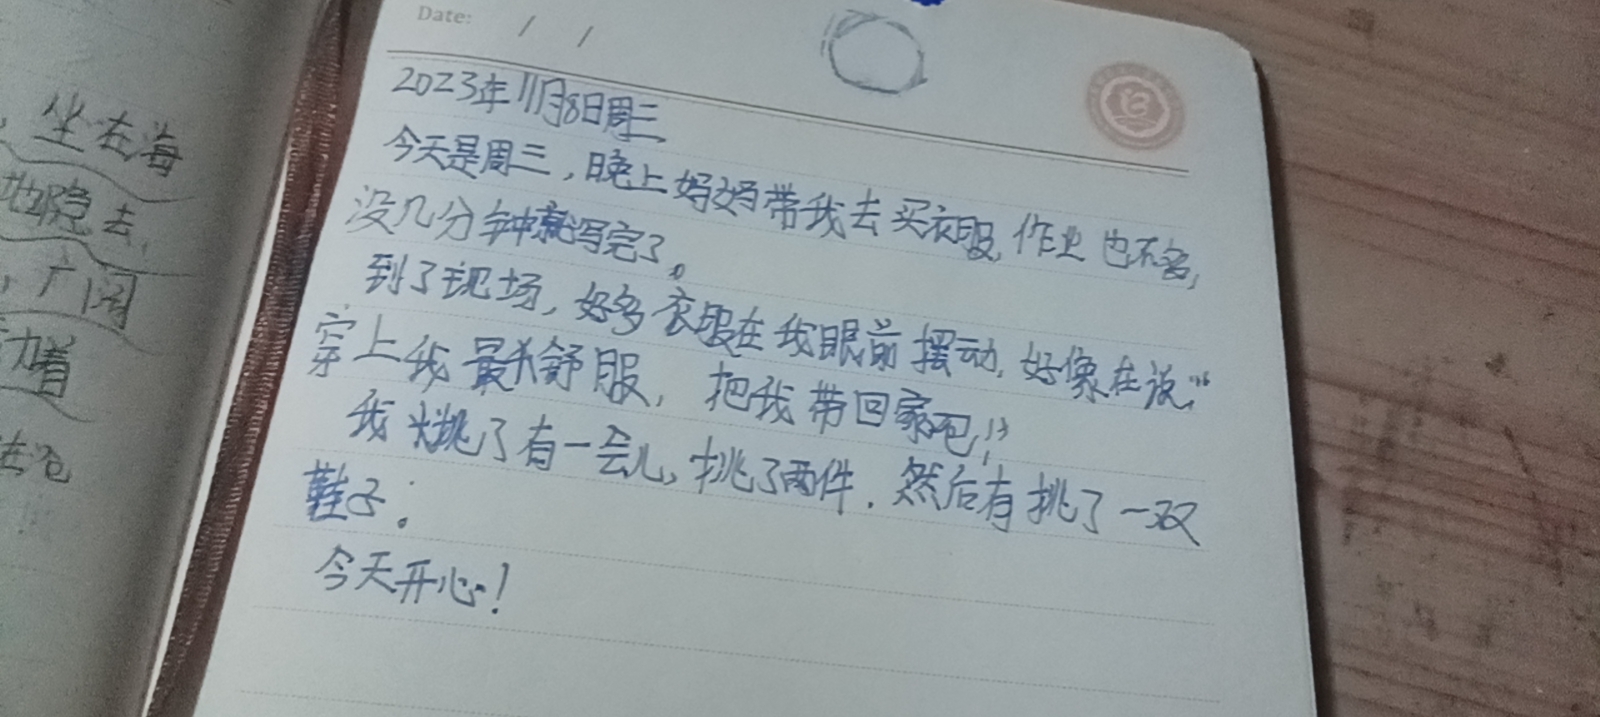 坐在海
地隐去,
广阔
力着
Date: / /
2023年11月8日周三
今天是周三,晚上妈妈带我去买衣服,作业也不多,
没几分钟就写完了。
到了现场,好多衣服在我眼前摆动,好像在说:“
穿上我最舒服,把我带回家吧!”
我挑了有一会儿,挑了两件,然后有挑了一双
鞋子。
今天开心!